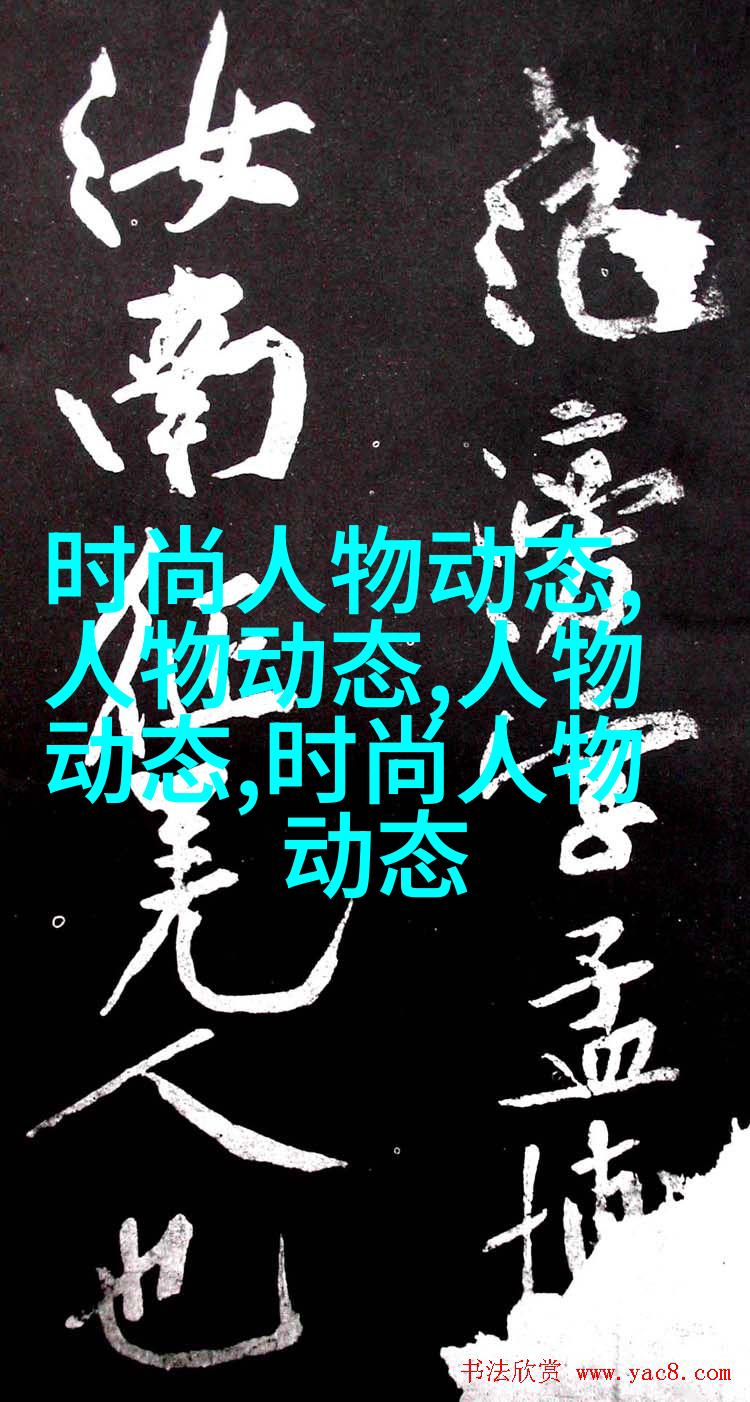 范滂字孟博
汝南征羌人也
时尚人物动态,
人物动态,人物
动态,时尚人物
动态
书法欣赏 www.yac8.com